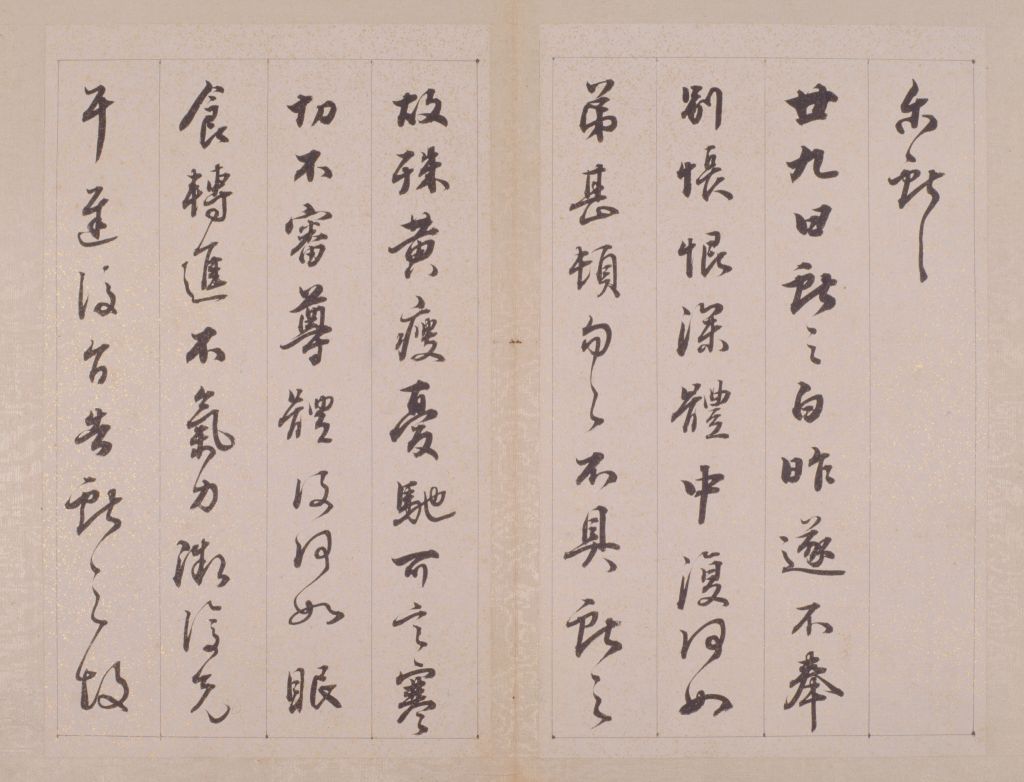 尔獻
廿九日獻之白昨遂不奉
別悵恨深體中復何如
弟甚頓匆々不具獻之
故殊黃瘦憂馳可言寒
切不審尊體復何如眠
食轉進不氣力漸復充
耳遲復告獻之故